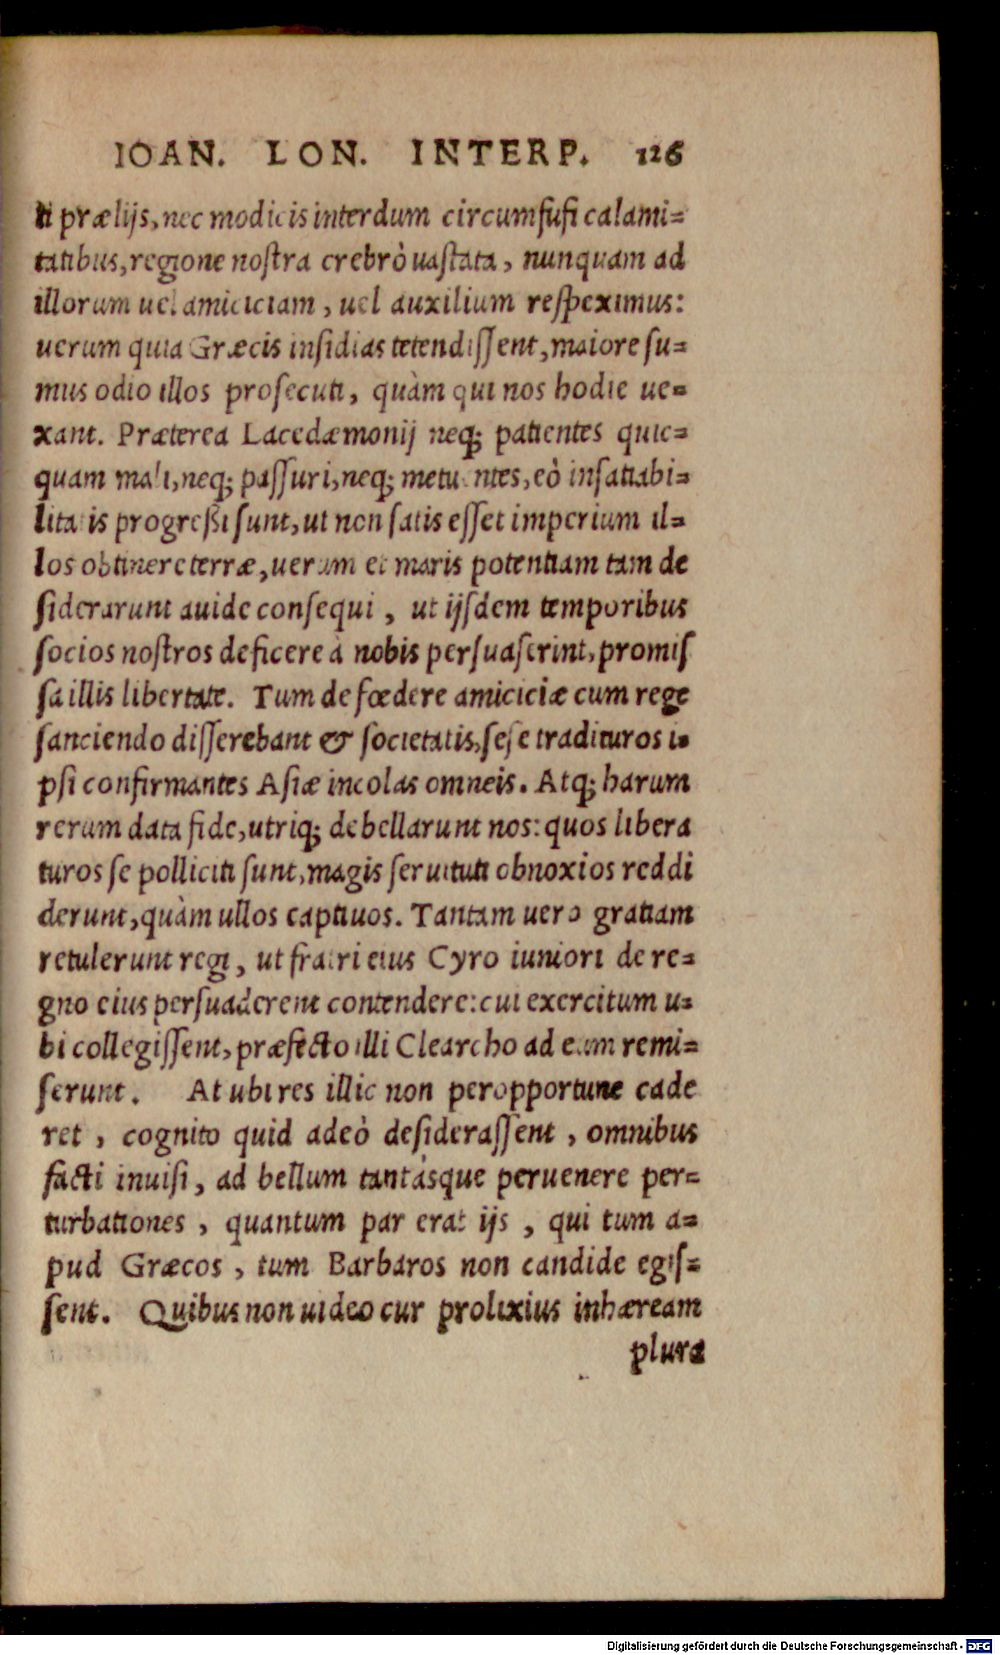 IOAN. LON. INTERP. 126
ti prælijs, nec modicis interdum circumfusi calami=
tatibus, regione nostra crebrò uastata, nunquam ad
illorum uel amiciciam, uel auxilium respeximus:
uerum quia Græcis insidias tetendissent, maiore su=
mus odio illos prosecuti, quàm qui nos hodie ue=
xant. Præterea Lacedæmonij neq; patientes quic=
quam mali, neq; passuri, neq; metuentes, eò insatiabi=
litatis progreßi sunt, ut non satis esset imperium il=
los obtinere terræ, uerum et maris potentiam tam de
siderarunt auide consequi, ut ijsdem temporibus
socios nostros deficere à nobis persuaserint, promis
sa illis libertate. Tum de fœdere amiciciæ cum rege
sanciendo disserebant & societatis, sese tradituros i=
psi confirmantes Asiæ incolas omneis. Atq; harum
rerum data fide, utriq; debellarunt nos: quos libera
turos se polliciti sunt, magis seruituti obnoxios reddi
derunt, quàm ullos captiuos. Tantam uero gratiam
retulerunt regi, ut fratri eius Cyro iuniori de re=
gno eius persuaderent contendere: cui exercitum u=
bi collegissent, præfecto illi Clearcho ad eum remi=
serunt. At ubi res illic non peropportune cade
ret, cognito quid adeò desiderassent, omnibus
facti inuisi, ad bellum tantásque peruenere per=
turbationes, quantum par erat ijs, qui tum a=
pud Græcos, tum Barbaros non candide egis=
sent. Quibus non uideo cur prolixius inhæream
plura
Digitalisierung gefördert durch die Deutsche Forschungsgemeinschaft - DFG